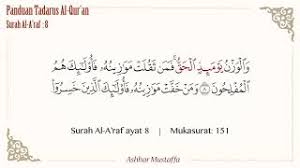 Panduan Tadarus Al-Qur'an
Surah Al-A'raf : 8
وَالْوَزْنُ يَوْمَئِذٍ الْحَقُّ فَمَن ثَقُلَتْ مَوَازِينُهُ فَأُولَٰئِكَ هُمُ
الْمُفْلِحُونَ ٨ وَمَنْ خَفَّتْ مَوَازِينُهُ فَأُولَٰئِكَ الَّذِينَ خَسِرُوا
Surah Al-A'raf ayat 8 | Mukasurat: 151
Ashhar Mustaffa